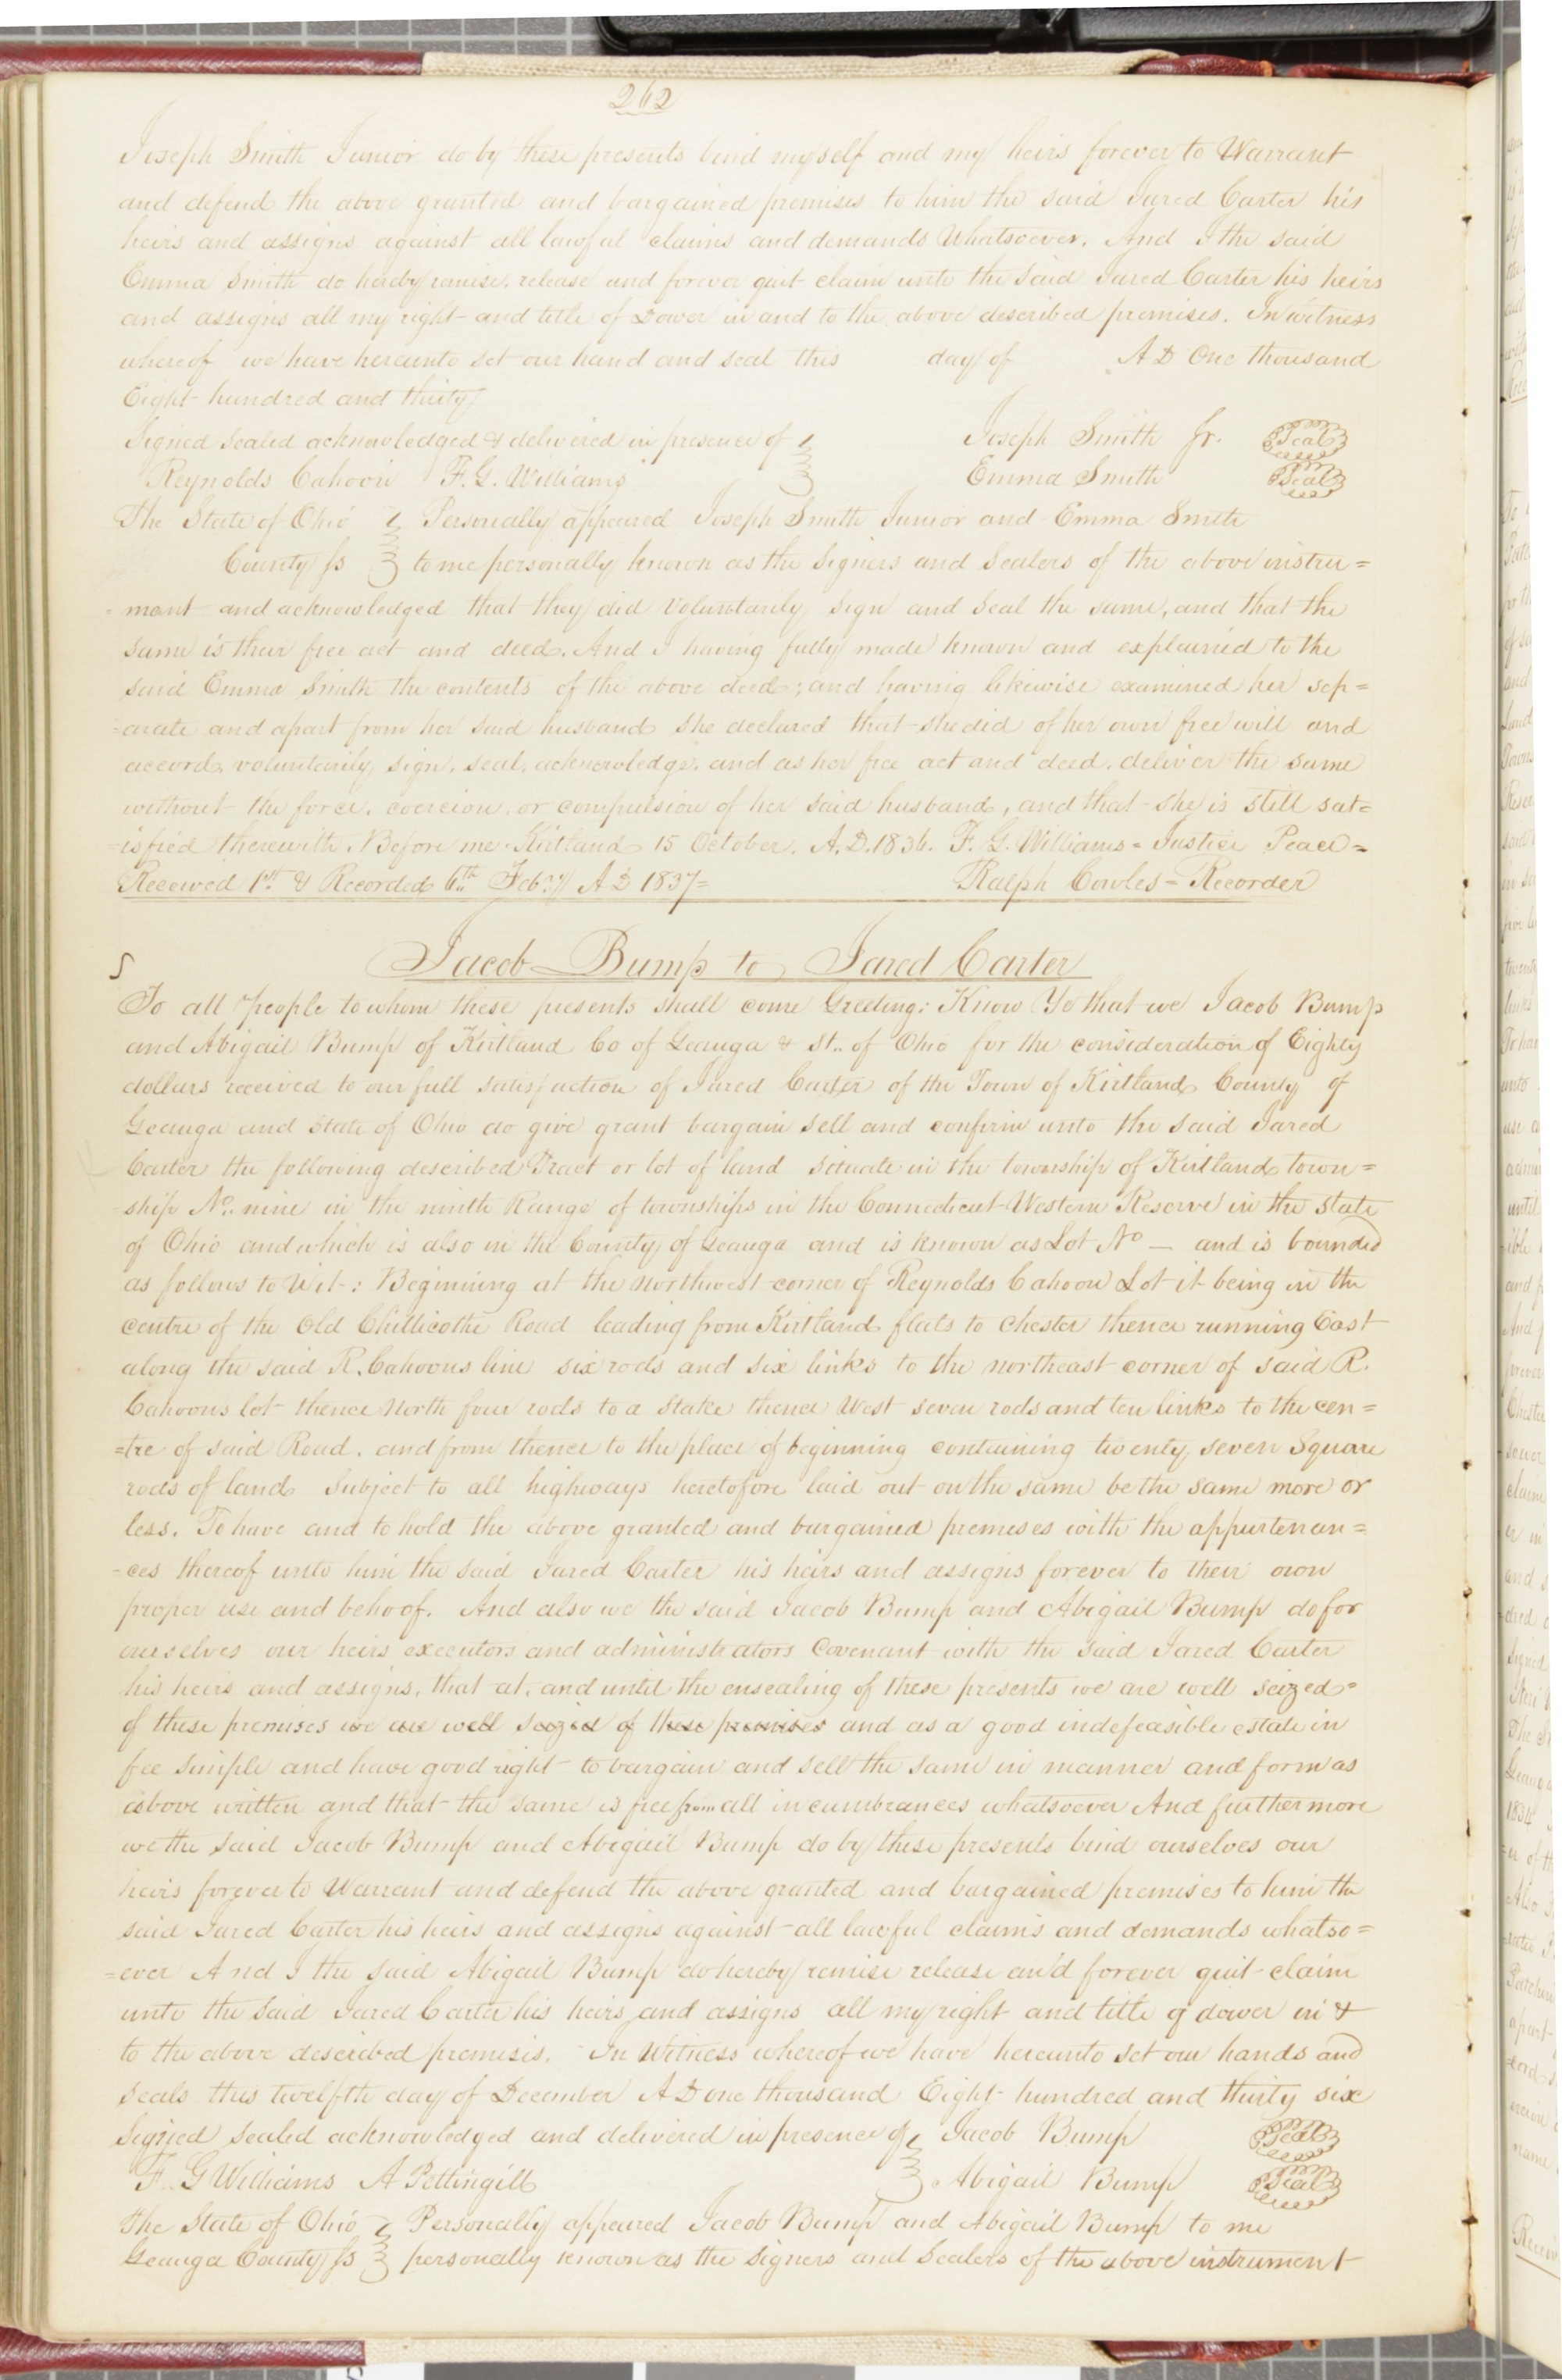 262
Joseph Smith Junior do by these presents bind myself and my heirs forever to Warrant
and defend the above granted and bargained premises to him the said Jared Carter his
heirs and assigns against all lawful claims and demands Whatsoever. And I the said
Emma Smith do hereby remise, release and forever quit claim unto the said Jared Carter his heirs
and assigns all my right and title of Dower in and to the above described premises. In witness
whereof we have hereunto set our hand and seal this day of A D One thousand
Eight hundred and thirty
Signed sealed acknowledged & delivered in presence of Joseph Smith Jr. Seal
Reynolds Cahoon F. G. Williams Emma Smith Seal
The State of Ohio Personally appeared Joseph Smith Junior and Emma Smith
County ss to me personally known as the Signers and Sealers of the above instru=
ment and acknowledged that they did Voluntarily sign and seal the same, and that the
same is their free act and deed. And I having fully made known and explained to the
said Emma Smith the contents of the above deed; and having likewise examined her sep=
=arate and apart from her said husband she declared that she did of her own free will and
accord, voluntarily, sign, seal, acknowledge, and as her free act and deed, deliver the same
without the force, coercion, or compulsion of her said husband, and that she is still sat=
=isfied therewith. Before me Kirtland 15 October. A.D. 1836. F. G. Williams = Justice Peace =
Received 1st & Recorded 6th Feby A D 1837= Ralph Cowles = Recorder
Jacob Bump to Jared Carter
To all People to whom these presents shall come Greeting: Know Ye that we Jacob Bump
and Abigail Bump of Kirtland Co of Geauga & St.. of Ohio for the consideration of Eighty
dollars received to our full satisfaction of Jared Carter of the Town of Kirtland County of
Geauga and State of Ohio do give grant bargain sell and confirm unto the said Jared
Carter the following described Tract or lot of land situate in the township of Kirtland town=
ship No. nine in the ninth Range of townships in the Connecticut Western Reserve in the state
of Ohio and which is also in the County of Geauga and is known as Lot No — and is bounded
as follows to Wit: Beginning at the northwest corner of Reynolds Cahoon Lot it being in the
centre of the Old Chillicothe Road leading from Kirtland flats to Chester thence running East
along the said R. Cahoons line six rods and six links to the northeast corner of said R.
Cahoons lot thence North four rods to a stake thence West seven rods and ten links to the cen=
=tre of said Road. and from thence to the place of beginning containing twenty seven Square
rods of land Subject to all highways heretofore laid out on the same be the same more or
less. To have and to hold the above granted and bargained premises with the appurtenan=
=ces thereof unto him the said Jared Carter his heirs and assigns forever to their own
proper use and behoof. And also we the said Jacob Bump and Abigail Bump do for
ourselves our heirs executors and administrators Covenant with the said Jared Carter
his heirs and assigns, that at, and until the ensealing of these presents we are well seized
of these premises we are well seized of these premises and as a good indefeasible estate in
fee simple and have good right to bargain and sell the same in manner and form as
above written and that the same is free from all incumbrances whatsoever And furthermore
we the said Jacob Bump and Abigail Bump do by these presents bind ourselves our
heirs forever to Warrant and defend the above granted and bargained premises to him the
said Jared Carter his heirs and assigns against all lawful claims and demands whatso=
=ever And I the said Abigail Bump do hereby remise release and forever quit claim
unto the said Jared Carter his heirs and assigns all my right and title of dower in &
to the above described premises. In Witness whereof we have hereunto set our hands and
seals this twelfth day of December A D one thousand Eight hundred and thirty six
Signed sealed acknowledged and delivered in presence of Jacob Bump Seal
F. G Williams A Pettingill Abigail Bump Seal
The State of Ohio Personally appeared Jacob Bump and Abigail Bump to me
Geauga County ss personally known as the Signers and Sealers of the above instrument